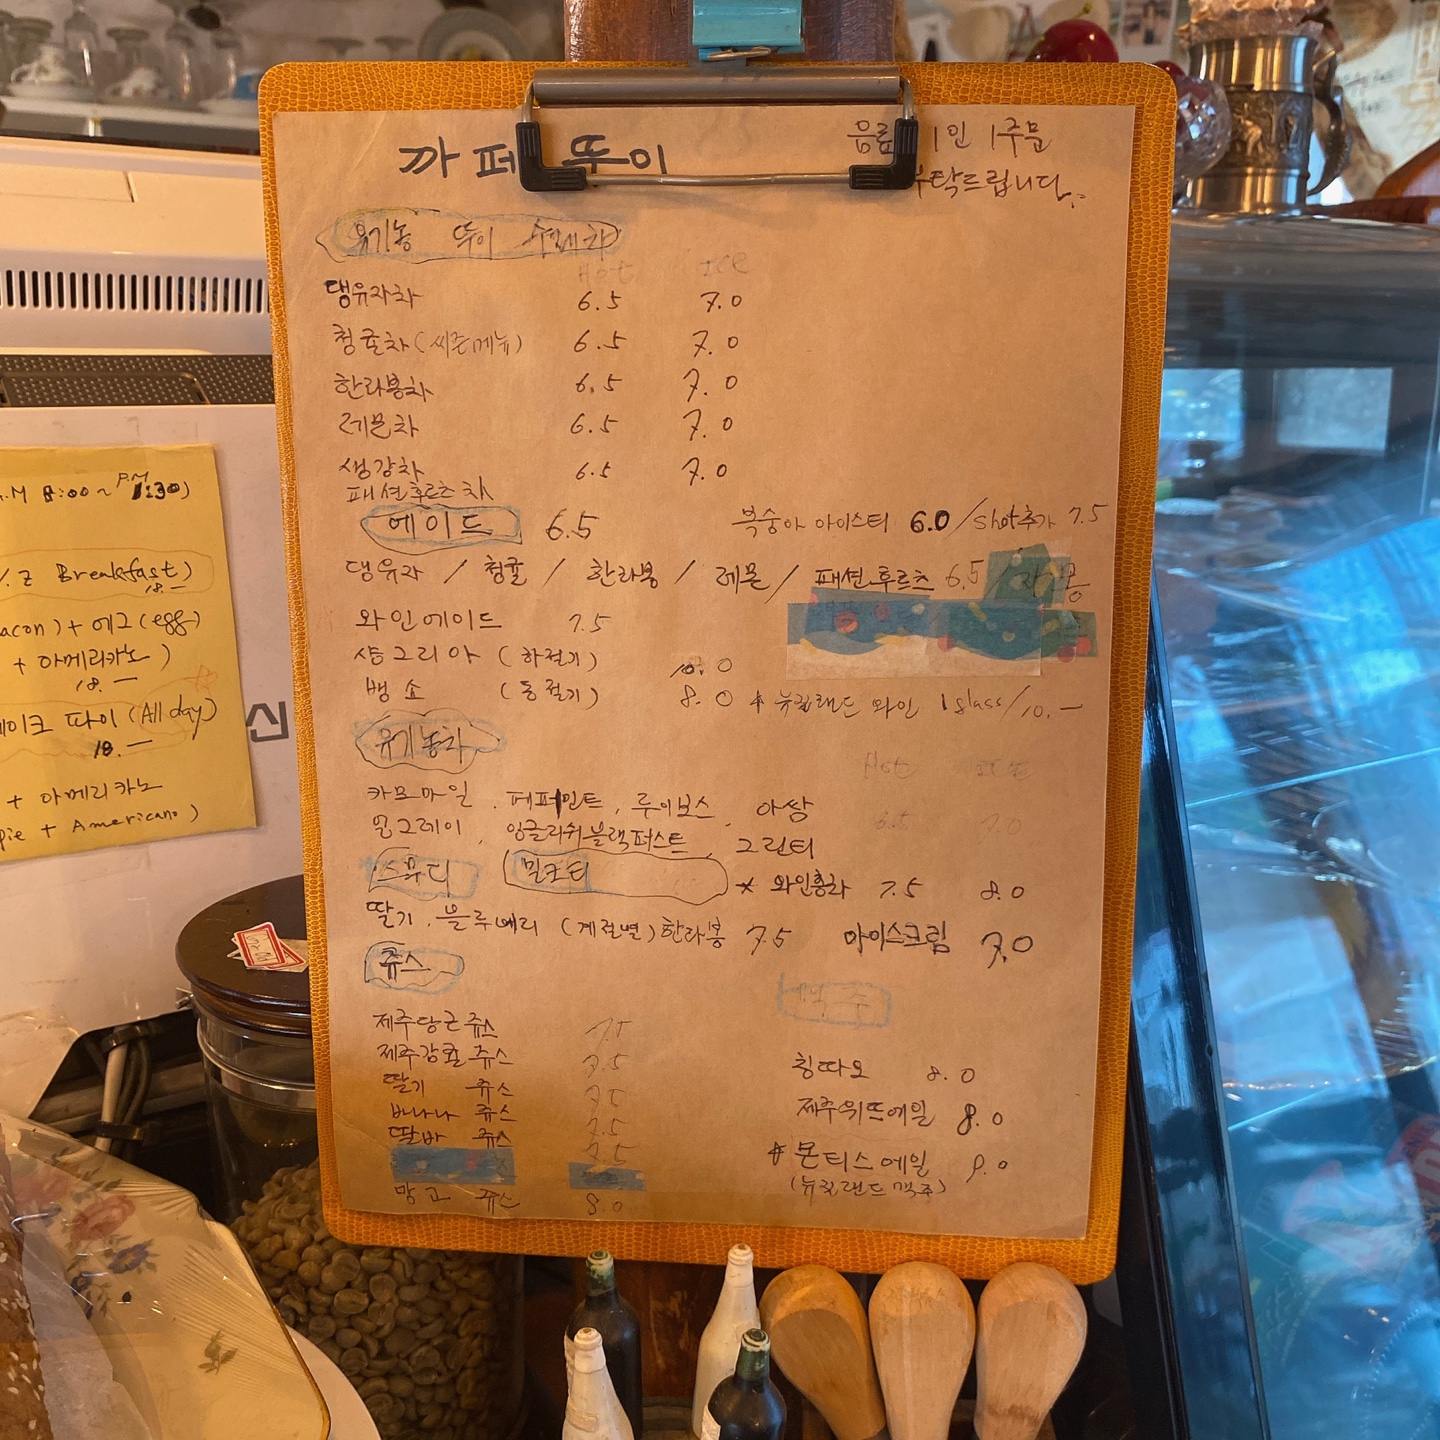 까페 뚜이
음료 1인 1주문
부탁드립니다.
유기농 뚜이 수제차
Hot ICE
댕유자차 6.5 7.0
청귤차 (씨즌메뉴) 6.5 7.0
한라봉차 6.5 7.0
레몬차 6.5 7.0
생강차 6.5 7.0
패션후르츠차
에이드 6.5
복숭아 아이스티 6.0 / shot추가 7.5
댕유자 / 청귤 / 한라봉 / 레몬 / 패션후르츠 6.5 / 자몽
와인에이드 7.5
샹그리아 (하절기) 10.0
뱅쇼 (동절기) 8.0
* 뉴질랜드 와인 1glass/10.-
유기농차
Hot ICE
카모마일, 페퍼민트, 루이보스, 아쌈
얼그레이, 잉글리쉬블랙퍼스트, 그린티
6.5 7.0
스무디 밀크티
* 와인홍차 7.5 8.0
딸기, 블루베리 (계절별) 한라봉 7.5
아이스크림 7.0
쥬스
제주당근쥬스 7.5
제주감귤쥬스 7.5
딸기 쥬스 7.5
바나나 쥬스 7.5
딸바 쥬스 7.5
망고 쥬스 8.0
맥주
칭따오 8.0
제주위트에일 8.0
* 몬티스에일 9.0
(뉴질랜드 맥주)
A.M 8:00 ~ P.M 1:30)
Breakfast)
18.-
acon) + 에그(egg)
+ 아메리카노)
18.-
케이크 파이 (All day)
18.-
+ 아메리카노
pie + Americano)
신